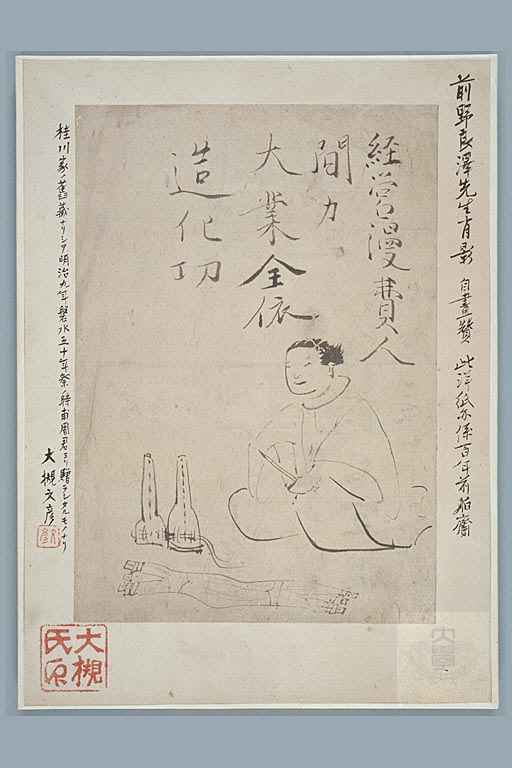 前野良澤先生肖影 自畫贊 此洋紙亦係百年前舶齎
経営漫費人
間力
大業全依
造化功
桂川家ノ舊藏ナリシヲ明治九年磐水五十年祭ノ時甫周君ヨリ贈ラレタルモノナリ
大槻文彦
大槻氏印